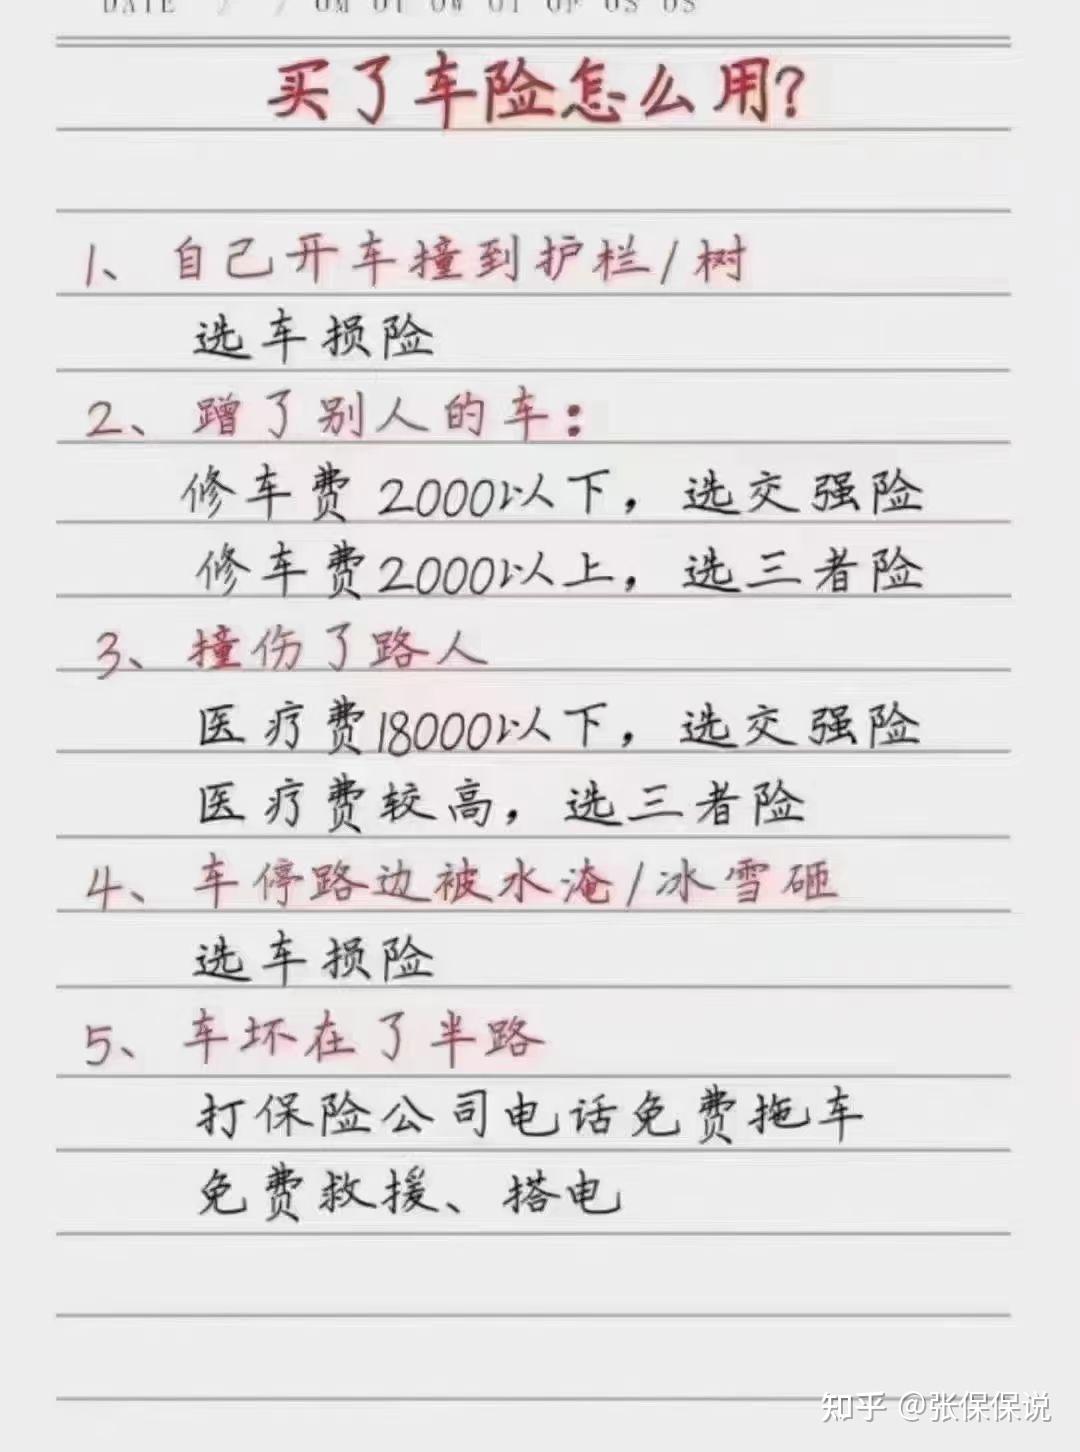 DATE / /
买了车险怎么用?
1、自己开车撞到护栏/树
选车损险
2、蹭了别人的车:
修车费2000以下，选交强险
修车费2000以上，选三者险
3、撞伤了路人
医疗费18000以下，选交强险
医疗费较高，选三者险
4、车停路边被水淹/冰雪砸
选车损险
5、车坏在了半路
打保险公司电话免费拖车
免费救援、搭电
知乎 @张保保说